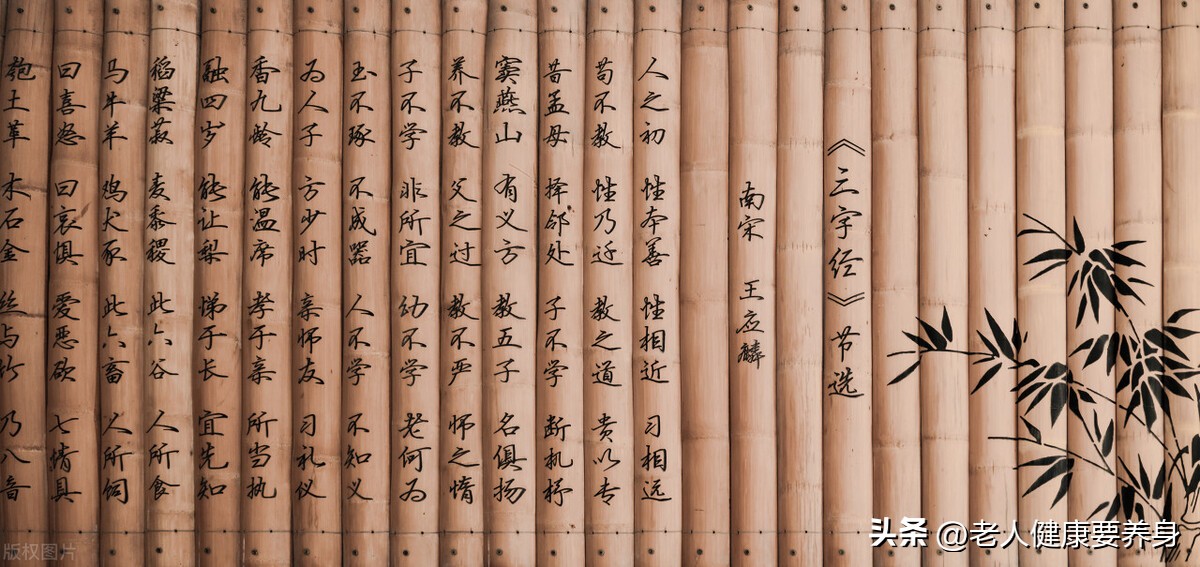 《三字经》节选
南宋 王应麟
人之初 性本善 性相近 习相远
苟不教 性乃迁 教之道 贵以专
昔孟母 择邻处 子不学 断机杼
窦燕山 有义方 教五子 名俱扬
养不教 父之过 教不严 师之惰
子不学 非所宜 幼不学 老何为
玉不琢 不成器 人不学 不知义
为人子 方少时 亲师友 习礼仪
香九龄 能温席 孝于亲 所当执
融四岁 能让梨 悌于长 宜先知
稻粱菽 麦黍稷 此六谷 人所食
马牛羊 鸡犬豕 此六畜 人所饲
曰喜怒 曰哀惧 爱恶欲 七情具
匏土革 木石金 丝与竹 乃八音
版权图片
头条 @老人健康要养身